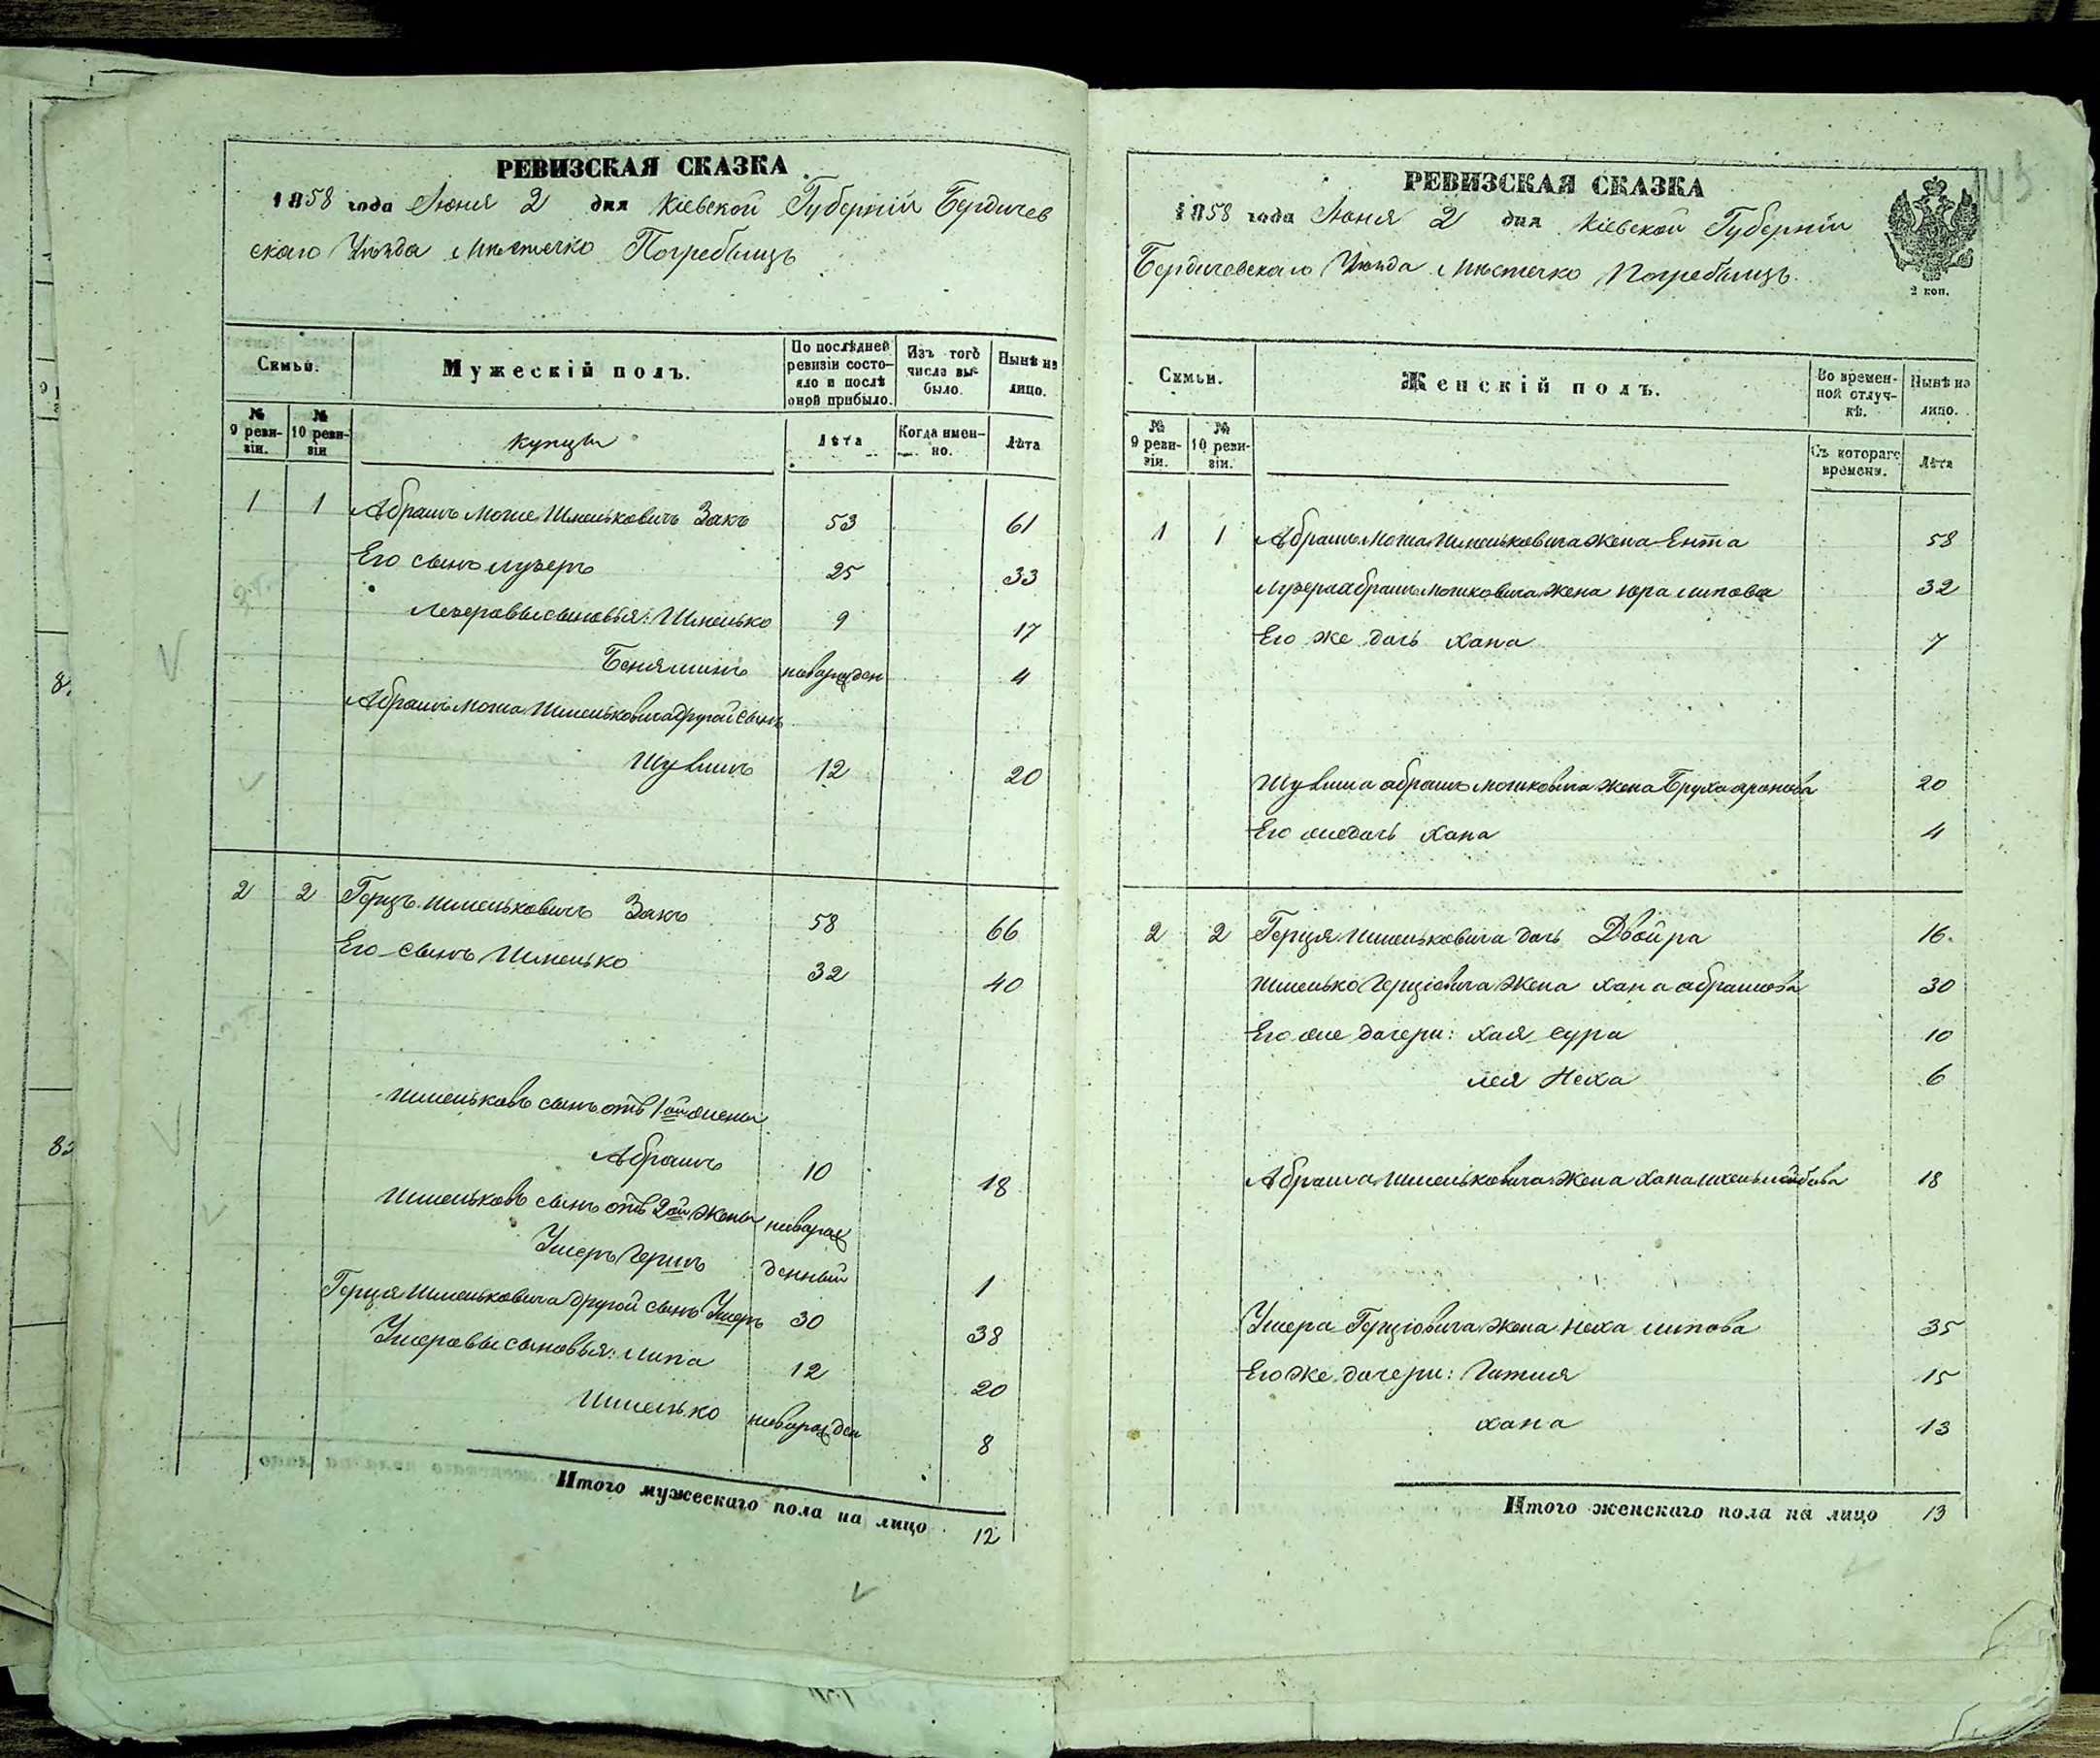 РЕВИЗСКАЯ СКАЗКА
1858 года Июня 2 дня Кіевской Губерніи Бердичев
скаго Уѣзда Мѣстечко Погребищъ
Семьи.
Мужескій полъ.
По послѣдней ревизіи состо-яло и послѣ оной прибыло.
Изъ того числа вы-было.
Нынѣ на лицо.
№ 9 реви-зіи.
№ 10 реви-зіи
Купцы
Лѣта
Когда имен-но.
Лѣта
1 1 Абрамъ Моше Шмельковичъ Закъ 53 61
Его сынъ Лузеръ 25 33
Лезеровы сыновья: Шмелько 9 17
Беняминъ новорожден 4
Абрамъ Мошка Шмельковича другой сынъ
Шулимъ 12 20
2 2 Герцъ Шмельковичъ Закъ 58 66
Его сынъ Шмелько 32 40
Шмельковъ сынъ отъ 1ой жены
Абрамъ 10 18
Шмельковъ сынъ отъ 2ой жены новорож
Ушеръ Гершъ денный 1
Герца Шмельковича другой сынъ Ушеръ 30 38
Ушеровы сыновья: Липа 12 20
Шмелько новорожден 8
Итого мужескаго пола на лицо 12
РЕВИЗСКАЯ СКАЗКА
1858 года Июня 2 дня Кіевской Губерніи
Бердичевскаго Уѣзда Мѣстечко Погребищъ.
2 коп.
Семьи.
Женскій полъ.
Во времен-ной отлуч-кѣ.
Нынѣ на лицо.
№ 9 реви-зіи.
№ 10 реви-зіи.
Съ котораго времени.
Лѣта
1 1 Абрамъ Моша Шмельковича жена Ента 58
Лузера Абрамъ Мошковича жена Юра Липова 32
Его же дочь Хана 7
Шулима Абрамъ Мошковича жена Бруха Аронова 20
Его же дочь Хана 4
2 2 Герца Шмельковича дочь Двойра 16
Шмелько Герціовича жена Хана Абрамова 30
Его же дочери: Хая Сура 10
Лея Неха 6
Абрама Шмельковича жена Хана 18
Ушера Герціовича жена Неха Липова 35
Его же дочери: Гитля 15
Хана 13
Итого женскаго пола на лицо 13